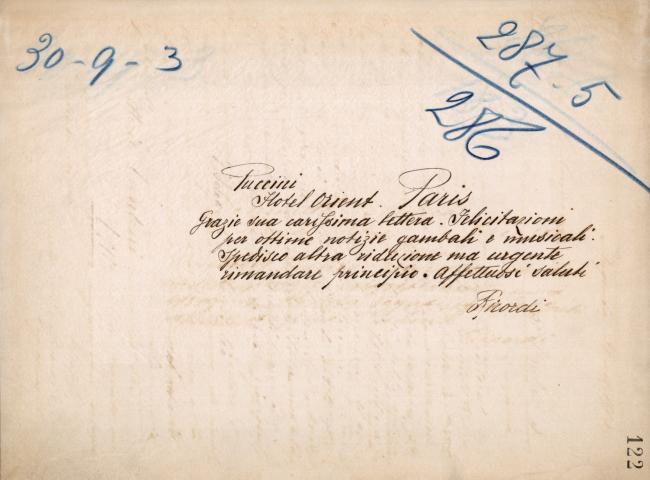 30-9-3
287-5
286
Puccini
Hotel Orient. Paris
Grazie sua carissima lettera. Felicitazioni
per ottime notizie gambali e musicali.
Spedisco altra riduzione ma urgente
rimandare principio. Affettuosi saluti
Ricordi
122